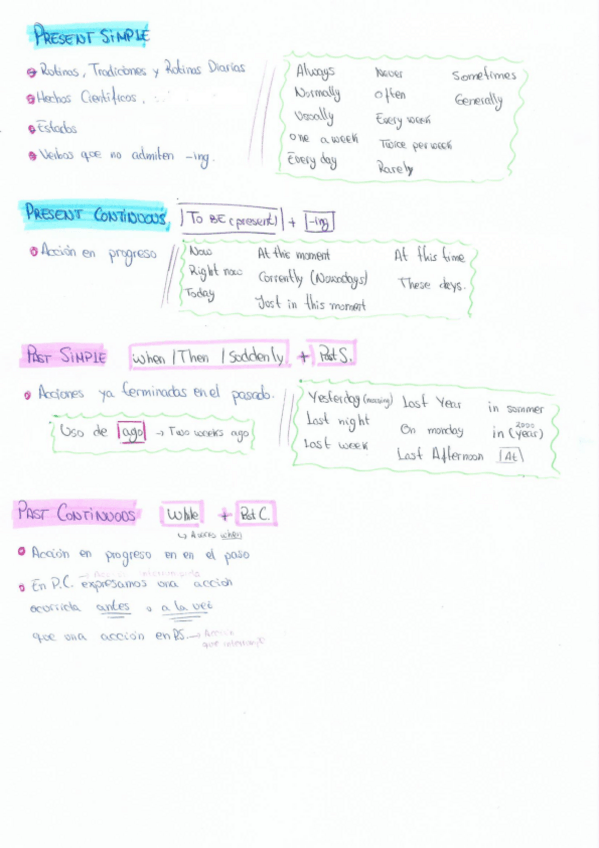 PRESENT SIMPLE
Rutinas, Tradiciones y Rutinas Diarias
Hechos Científicos.
Estados
Verbos que no admiten -ing.
Always Never Sometimes
Normally Often Generally
Usually Every week
one a week Twice per week
Every day Rarely
PRESENT CONTINUOUS, | TO BE (present) | + | -ing |
Acción en progreso
Now At this moment At this time
Right now Currently (Nowadays) These days.
Today Just in this moment
PAST SIMPLE when / Then / Suddenly + Past S.
Acciones ya terminadas en el pasado.
Uso de |ago| → Two weeks ago
Yesterday (morning) Last Year in summer
Last night On monday in (year) 2000
Last week Last Afternoon |At|
PAST CONTINUOUS While + Past C.
↳ A veces when
Acción en progreso en en el paso
En P.C. expresamos una acción
ocurrida antes o a la vez
que una acción en P.S. → Acción
que interrumpe